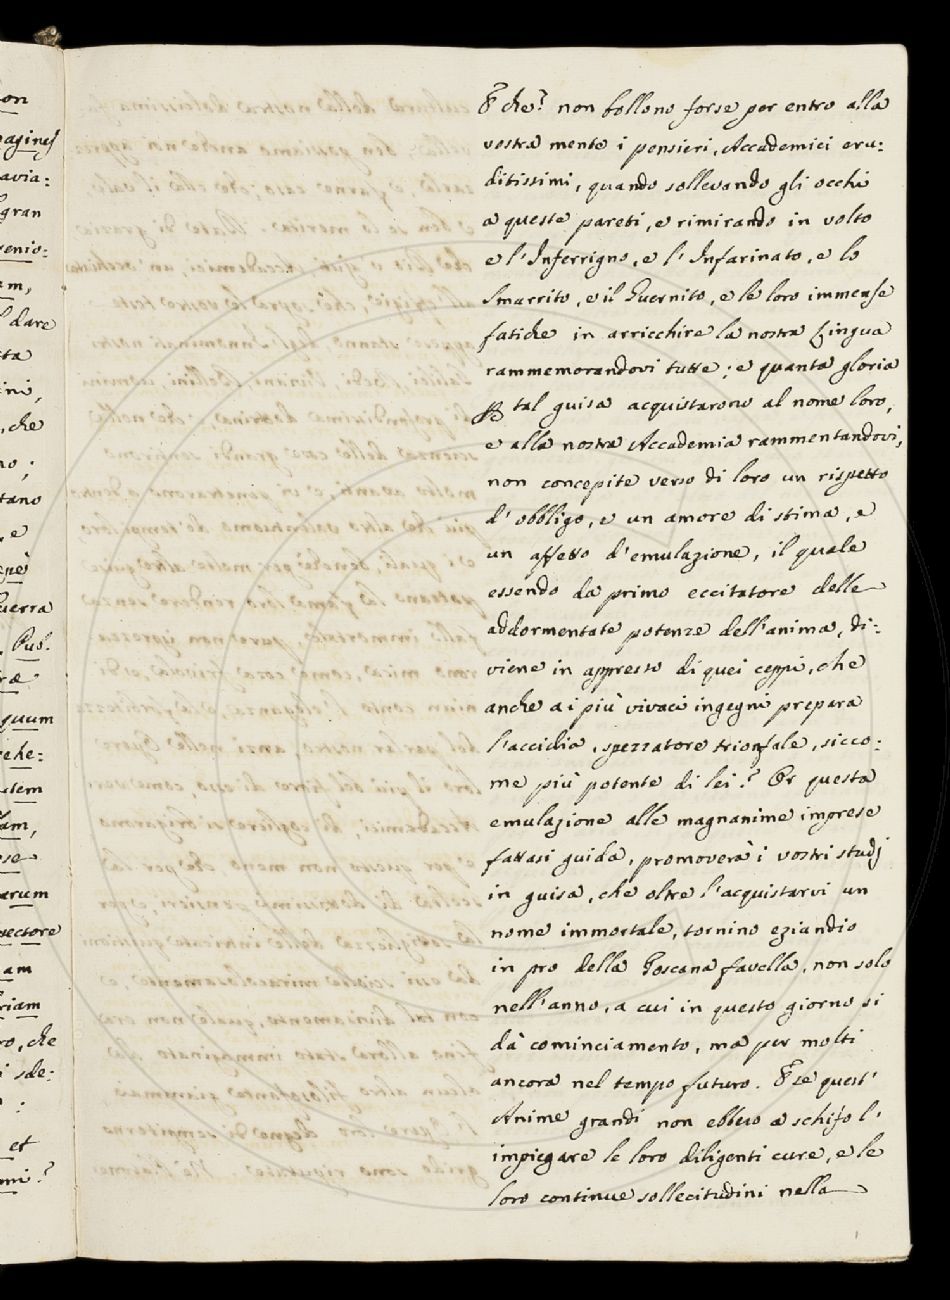 on
pagines
avia:
gran
venio:
am,
l dare
tta
ini,
, che
no ;
tano
, e
uerra
. Pub.
ræ
quum
vehe:
utem
lam,
ose
arum
sectore
am
riam
ro, che
i sde:
et
mi?
E che? non bollono forse per entro alla
vostra mente i pensieri, Accademici eru:
ditissimi, quando sollevando gli occhi
a queste pareti, e rimirando in volto
e l'Inferrigno, e l'Infarinato, e lo
Smarrito, e il Guernito, e le loro immense
fatiche in arricchire la nostra Lingua
rammemorandovi tutte; e quanta gloria
in tal guisa acquistarono al nome loro,
e alla nostra Accademia rammentandovi,
non concepite verso di loro un rispetto
d'obbligo, e un amore di stima, e
un affetto d'emulazione, il quale
essendo da primo eccitatore delle
addormentate potenze dell'anima, di:
viene in appresso di quei ceppi, che
anche a i più vivaci ingegni prepara
l'accidia, spezzatore trionfale, sicco:
me più potente di lei? Or questa
emulazione alle magnanime imprese
fattasi guida, promoverà i vostri studj
in guisa, che oltre l'acquistarvi un
nome immortale, tornino eziandio
in pro della Toscana favella, non solo
nell'anno, a cui in questo giorno si
dà cominciamento, ma per molti
ancora nel tempo futuro. E se quest'
Anime grandi non ebbero a schifo l'
impiegare le loro diligenti cure, e le
loro continue sollecitudini nella